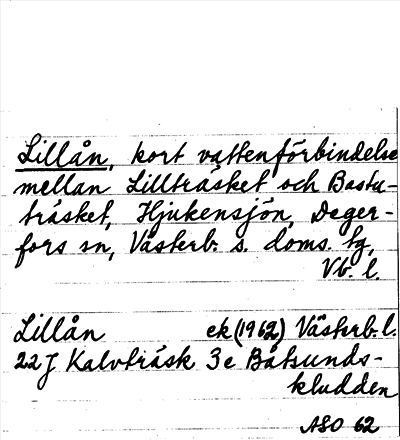 Lillån, kort vattenförbindelse
mellan Lillträsket och Bastu-
träsket, Hjukensjön, Deger-
fors sn, Västerb. s. doms. tg,
Vb. l.
Lillån ek (1962) Västerb. l.
22 J Kalvträsk 3e Båtsunds-
kludden
ASO 62